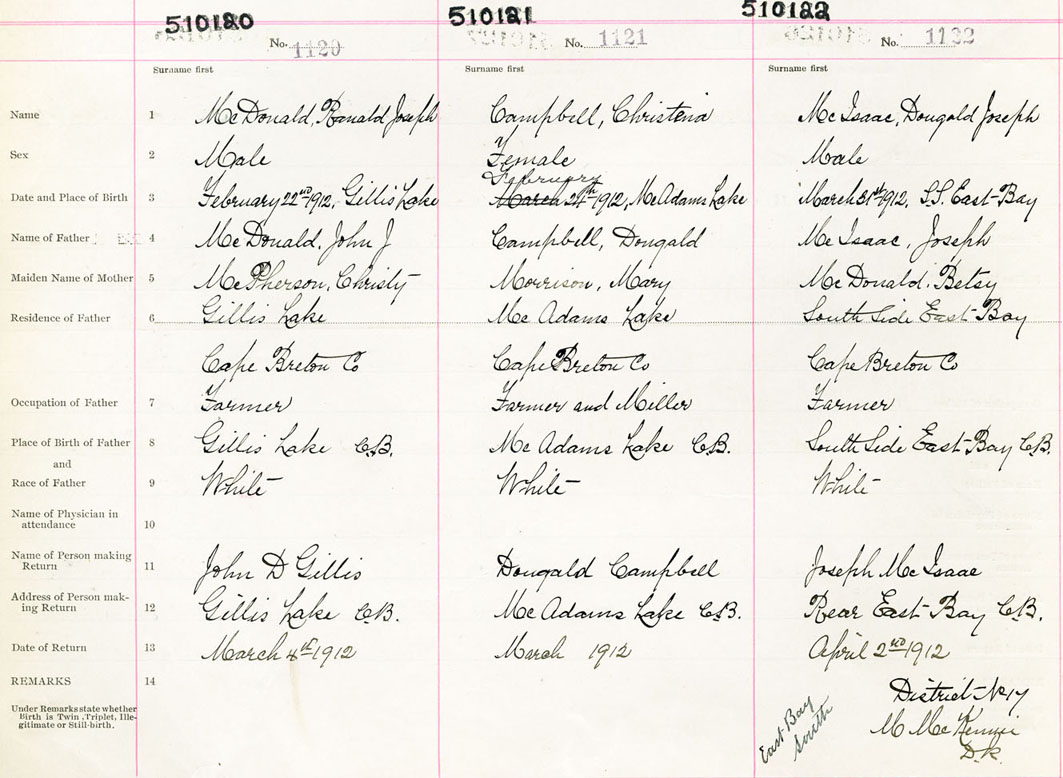 510120 510121 510122
No. 1120 No. 1121 No. 1122
Surname first Surname first Surname first
Name 1 McDonald, Ranald Joseph Campbell, Christena McIsaac, Dougald Joseph
Sex 2 Male Female Male
February
Date and Place of Birth 3 February 22nd 1912, Gillis Lake March 24th 1912, McAdams Lake March 31st 1912, S.S. East-Bay
Name of Father 4 McDonald, John J Campbell, Dougald McIsaac, Joseph
Maiden Name of Mother 5 McPherson, Christy Morrison, Mary McDonald, Betsy
Residence of Father 6 Gillis Lake McAdams Lake South Side East-Bay
Cape Breton Co Cape Breton Co Cape Breton Co
Occupation of Father 7 Farmer Farmer and Miller Farmer
Place of Birth of Father 8 Gillis Lake C.B. McAdams Lake C.B. South Side East-Bay C.B.
and
Race of Father 9 White White White
Name of Physician in
attendance 10
Name of Person making
Return 11 John D Gillis Dougald Campbell Joseph McIsaac
Address of Person mak-
ing Return 12 Gillis Lake C.B. McAdams Lake C.B. Rear East-Bay C.B.
Date of Return 13 March 4th 1912 March 1912 April 2nd 1912
REMARKS 14
Under Remarks state whether
Birth is Twin, Triplet, Ille-
gitimate or Still-birth.
District No 17
M McKennie
D.R.
East Bay
South